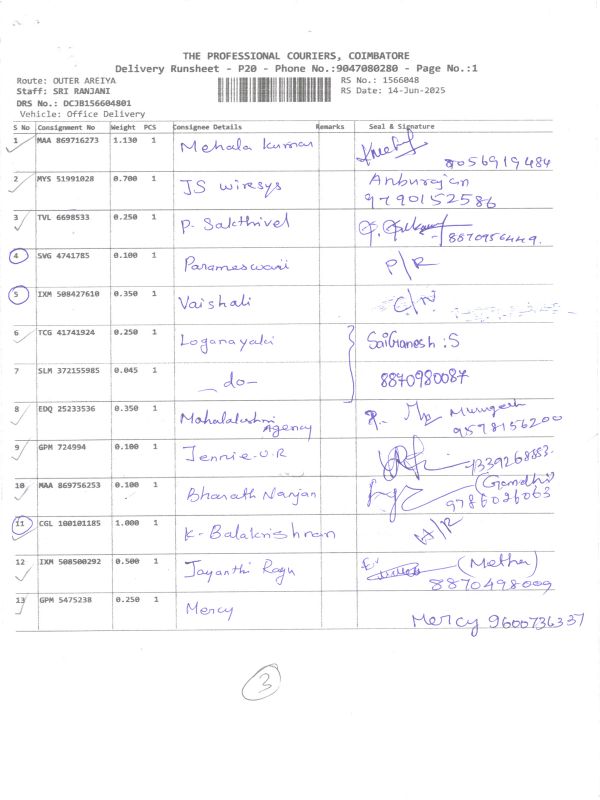 THE PROFESSIONAL COURIERS, COIMBATORE
Delivery Runsheet - P20 - Phone No.:9047080280 - Page No.:1
Route: OUTER AREIYA RS No.: 1566048
Staff: SRI RANJANI RS Date: 14-Jun-2025
DRS No.: DCJB156604801
Vehicle: Office Delivery
S No Consignment No Weight PCS Consignee Details Remarks Seal & Signature
1 MAA 869716273 1.130 1 Mehala Kumar
8056919484
2 MYS 51991028 0.700 1 JS wiresys Anburajan
9790152586
3 TVL 6698533 0.250 1 P. Sakthivel
8870956449.
4 SVG 4741785 0.100 1 Parameswari P/R
5 IXM 508427610 0.350 1 Vaishali C/N
6 TCG 41741924 0.250 1 Loganayaki SaiGanesh :S
7 SLM 372155985 0.045 1 -do- 8870980087
8 EDQ 25233536 0.350 1 Mahalakshmi Agency Murugesh
9578156200
9 GPM 724994 0.100 1 Jennie.U.R
10 MAA 869756253 0.100 1 Bharath Nanjan (Gandhi)
9786026063
11 CGL 100101185 1.000 1 K-Balakrishnan
12 IXM 508500292 0.500 1 Jayanthi Ragu (Mother)
8870498009
13 GPM 5475238 0.250 1 Mercy Mercy 9600736337
3